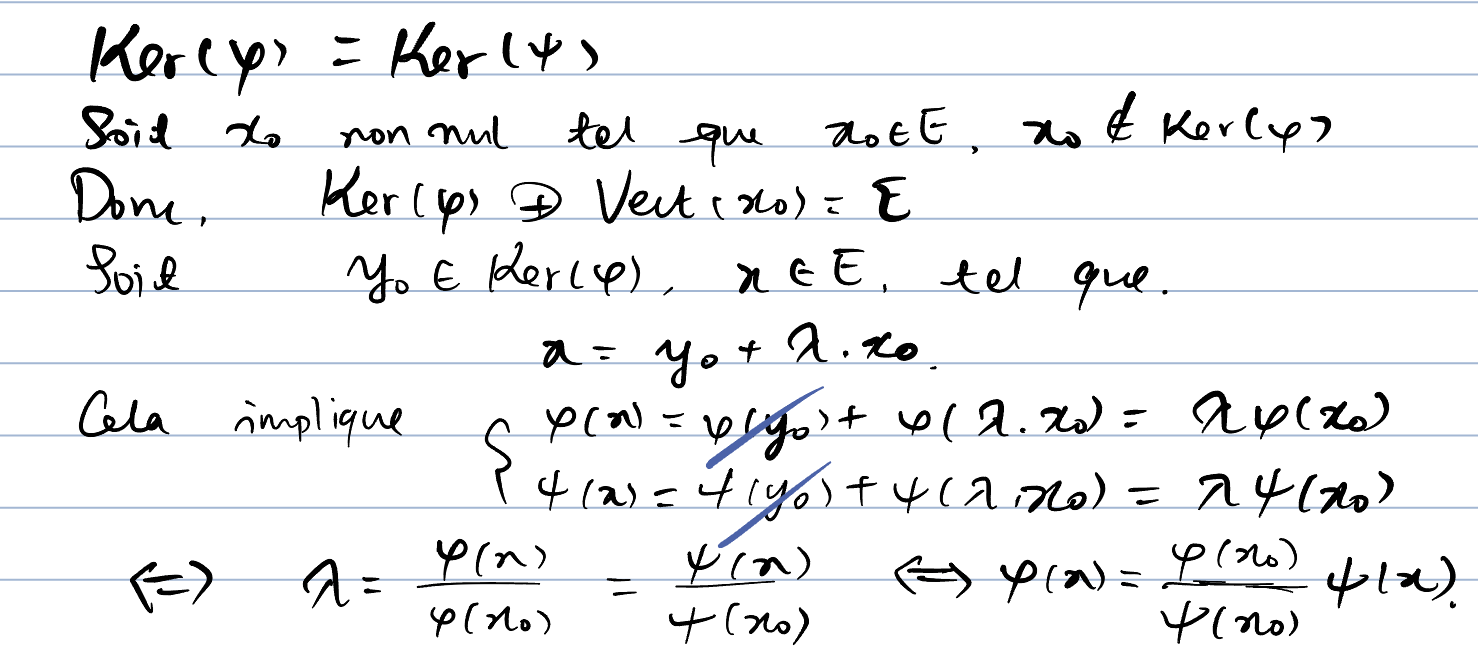 Ker(φ) = Ker(ψ)
Soit x₀ non nul tel que x₀ ∈ E, x₀ ∉ Ker(φ)
Donc, Ker(φ) ⊕ Vect(x₀) = E
Soit y₀ ∈ Ker(φ), x ∈ E, tel que.
x = y₀ + λ.x₀.
Cela implique { φ(x) = φ(y₀) + φ(λ.x₀) = λφ(x₀)
ψ(x) = ψ(y₀) + ψ(λ.x₀) = λψ(x₀)
⟺ λ = φ(x)/φ(x₀) = ψ(x)/ψ(x₀) ⟺ φ(x) = φ(x₀)/ψ(x₀) ψ(x).